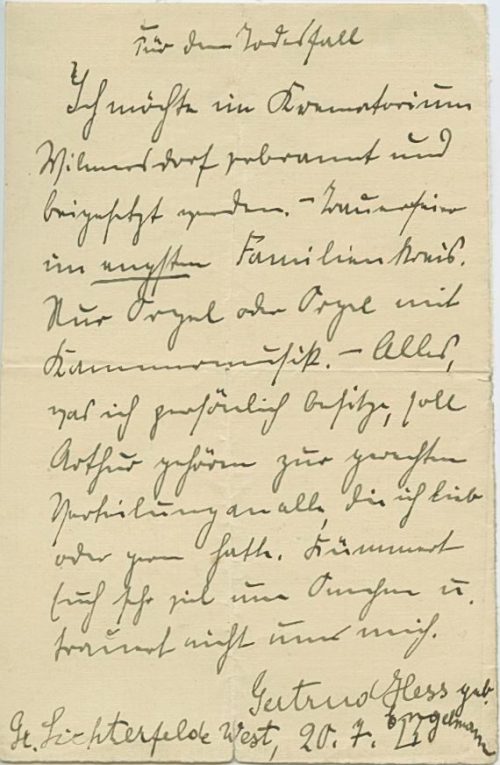 Für den Todesfall
Ich möchte im Krematorium
Wilmersdorf verbrannt und
beigesetzt werden. – Trauerfeier
im engsten Familienkreis.
Nur Orgel oder Orgel mit
Kammermusik. – Alles,
was ich persönlich besitze, soll
Arthur gehören zur gerechten
Verteilung an alle, die ich lieb
oder gern hatte. Kümmert
Euch sehr viel um u.
trauert nicht um mich.
Gertrud Hess geb.
Engelmann
Gr. Lichterfelde West, 20. 7.